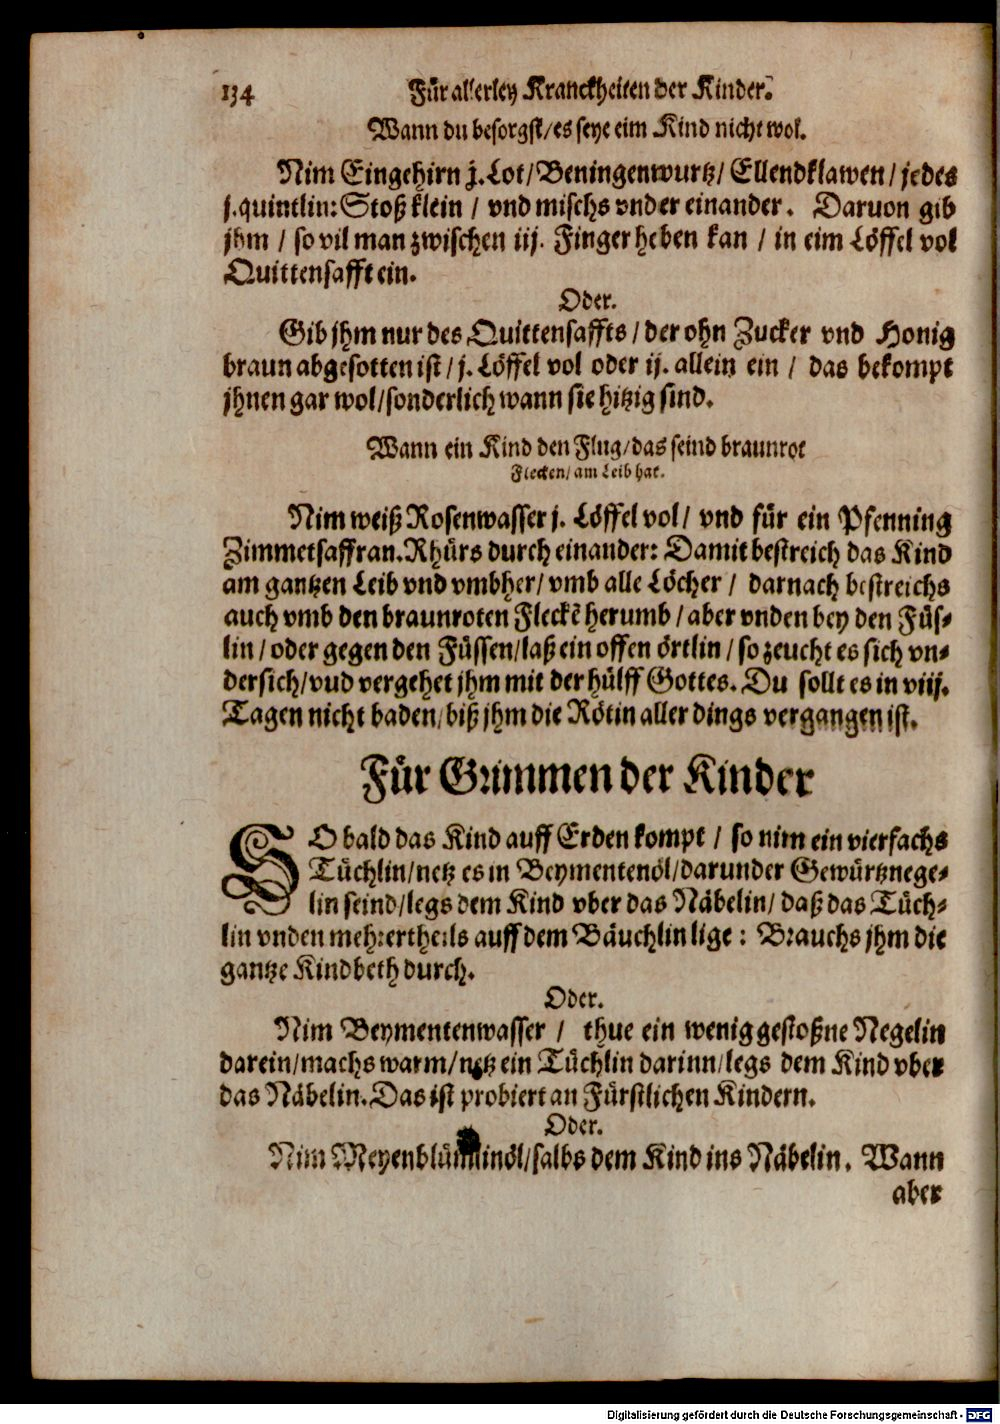 134 Für allerley Kranckheiten der Kinder.
Wann du besorgst/es seye eim Kind nicht wol.
Nim Eingehirn j. Lot/Beningenwurtz/Ellendklawen/jedes
j. quintlin: Stoß klein / vnd mischs vnder einander. Daruon gib
jhm / so vil man zwischen iij. Finger heben kan / in eim Löffel vol
Quittensafft ein.
Oder.
Gib jhm nur des Quittensaffts/der ohn Zucker vnd Honig
braun abgesotten ist/j. Löffel vol oder ij. allein ein / das bekompt
jhnen gar wol/sonderlich wann sie hitzig sind.
Wann ein Kind den Flug/das seind braunrot
Flecken/am Leib hat.
Nim weiß Rosenwasser j. Löffel vol/ vnd für ein Pfenning
Zimmetsaffran. Rhürs durch einander: Damit bestreich das Kind
am gantzen Leib vnd vmbher/vmb alle Löcher / darnach bestreichs
auch vmb den braunroten Fleckẽ herumb/aber vnden bey den Füs-
lin/oder gegen den Füssen/laß ein offen örtlin/so zeucht es sich vn-
dersich/vud vergehet jhm mit der hülff Gottes. Du sollt es in viij.
Tagen nicht baden/biß jhm die Rötin aller dings vergangen ist.
Für Grimmen der Kinder
SO bald das Kind auff Erden kompt / so nim ein vierfachs
Tüchlin/netz es in Beymentenöl/darunder Gewürtznege-
lin seind/legs dem Kind vber das Näbelin/ daß das Tüch-
lin vnden mehrertheils auff dem Bäuchlin lige: Brauchs jhm die
gantze Kindbeth durch.
Oder.
Nim Beymentenwasser / thue ein wenig gestoßne Negelin
darein/machs warm/netz ein Tüchlin darinn/legs dem Kind vber
das Näbelin. Das ist probiert an Fürstlichen Kindern.
Oder.
Nim Meyenblümlinöl/salbs dem Kind ins Näbelin. Wann
aber
Digitalisierung gefördert durch die Deutsche Forschungsgemeinschaft - DFG